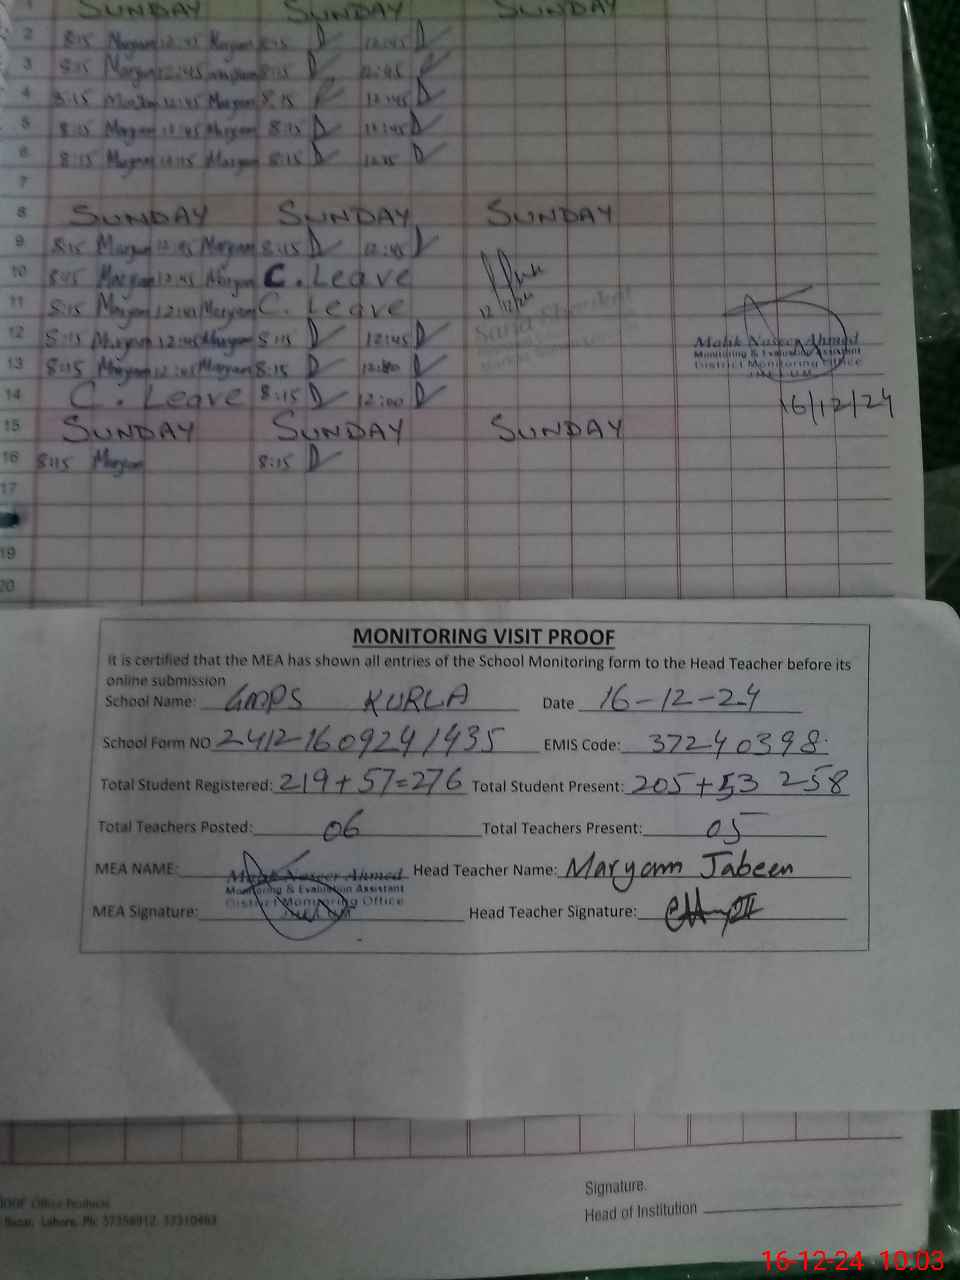 1 SUNDAY SUNDAY SUNDAY
2 8:15 Maryam 12:45 Maryam 8:15 12:45
3 8:15 Maryam 12:45 8:15 12:45
4 8:15 12:45 Maryam 8:15 12:45
5 8:15 Maryam 12:45 Maryam 8:15 12:45
6 8:15 Maryam Maryam 8:15
7
8 SUNDAY SUNDAY SUNDAY
9 8:15 Maryam 12:45 Maryam 8:15 12:45
10 8:15 Maryam 12:45 Maryam C. Leave
11 8:15 Maryam Maryam C. Leave
12/12/24
12 8:15 Maryam 12:45 Maryam 8:15 12:45
Malik Naseer Ahmed
Monitoring & Evaluation Assistant
District Monitoring Office
JHELUM
13 8:15 Maryam 12:45 Maryam 8:15
14 C. Leave 8:15 12:00
16/12/24
15 SUNDAY SUNDAY SUNDAY
16 8:15 Maryam 8:15
17
19
20
MONITORING VISIT PROOF
It is certified that the MEA has shown all entries of the School Monitoring form to the Head Teacher before its
online submission
School Name: GMPS KURLA Date 16-12-24
School Form NO 24121609241435 EMIS Code: 37240398
Total Student Registered: 219+57=276 Total Student Present: 205+53 258
Total Teachers Posted: 06 Total Teachers Present: 05
MEA NAME: Malik Naseer Ahmed Head Teacher Name: Maryam Jabeen
Monitoring & Evaluation Assistant
District Monitoring Office
MEA Signature: Head Teacher Signature:
Signature.
Office Products
Head of Institution
Bazar, Lahore. Ph: 37310463
16-12-24 10:03